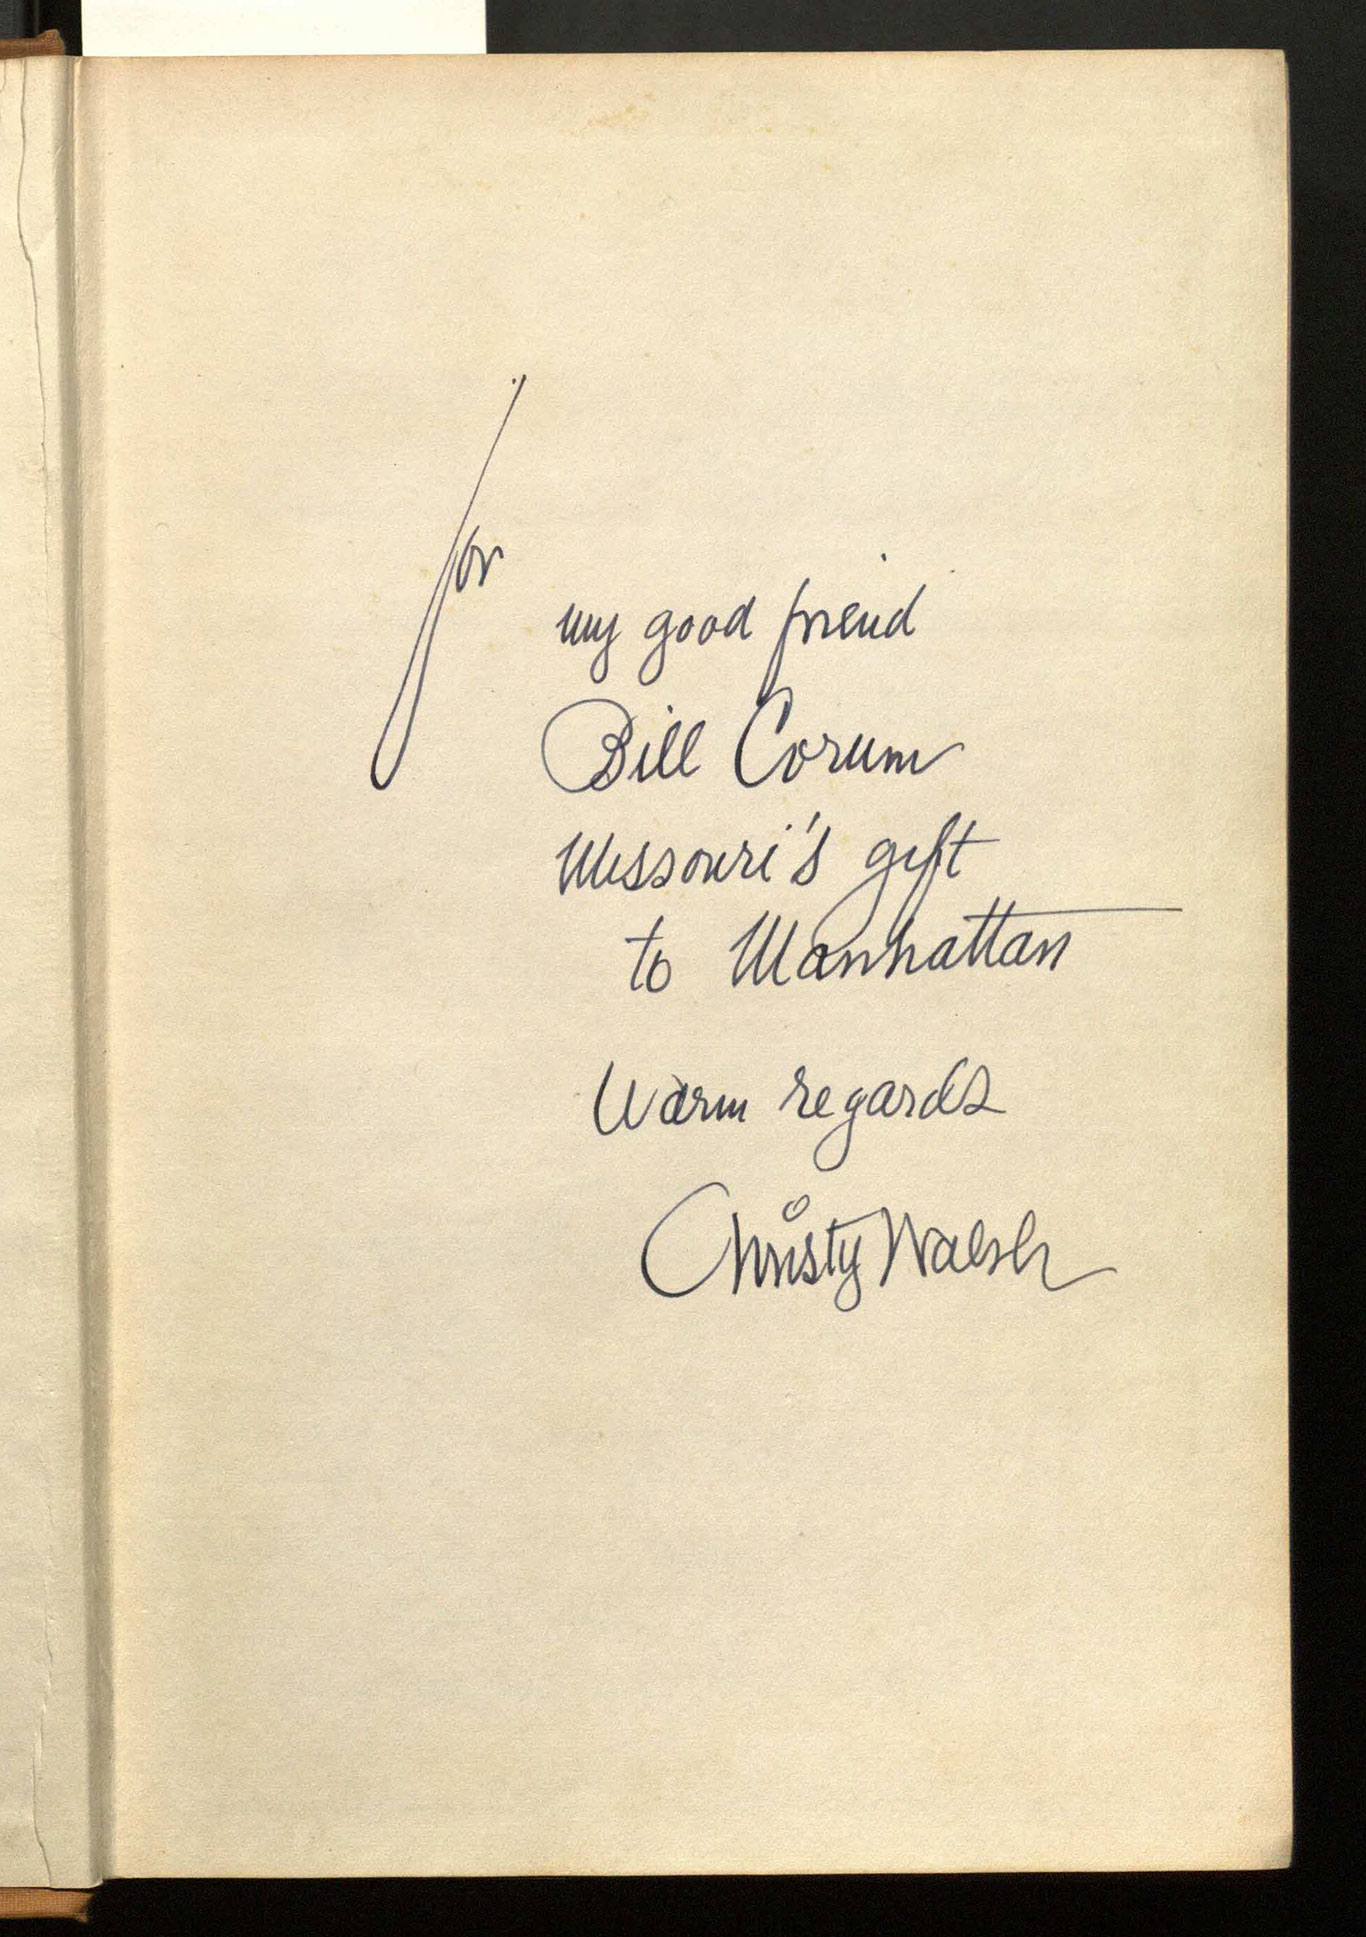 for
my good friend
Bill Corum
Missouri's gift
to Manhattan
Warm regards
Christy Walsh